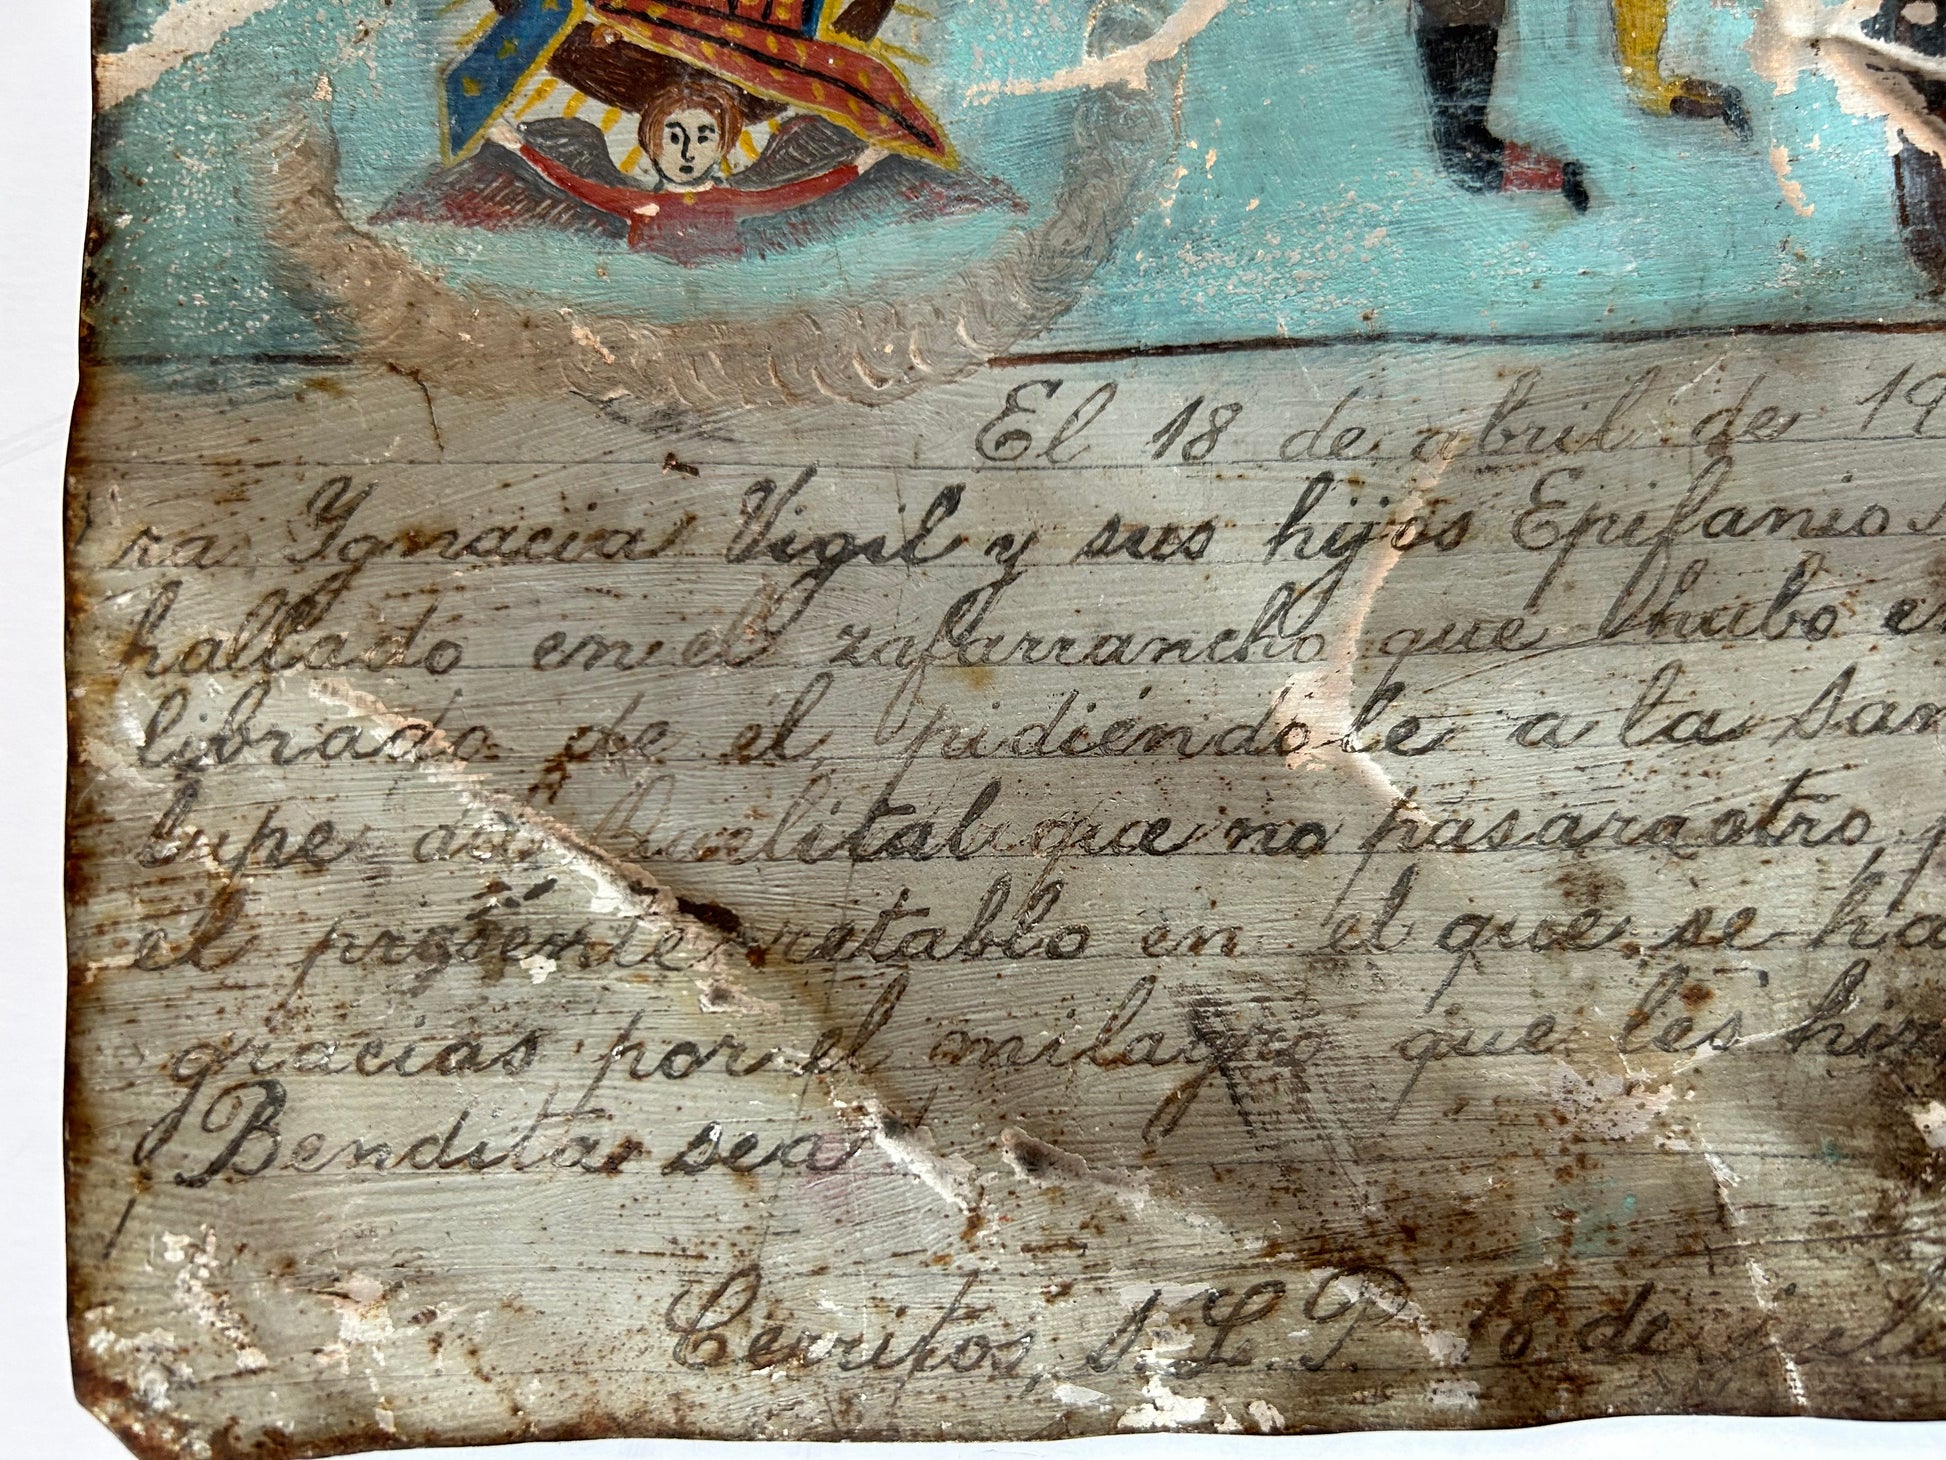 El 18 de abril de 19
ra. Ygnacia Vigil y sus hijos Epifanio
hallado en el zafarrancho que hubo e
librado de el, pidiéndole a la San
lupe que no pasara a otro,
el presente retablo en el que se ha
gracias por el milagro que les hi
Bendita sea
Cerritos, S.L.P. 18 de